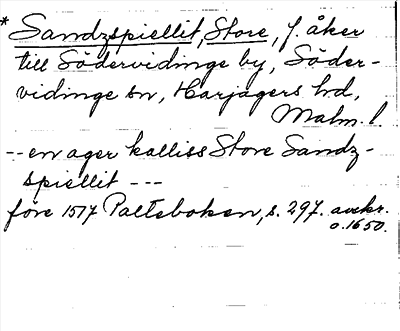 * Sandzspiellit, Store, f. åker
till Södervidinge by, Söder-
vidinge sn, Harjagers hd,
Malm. l.
-- en ager kalliss Store Sandz-
spiellit ---
före 1517 Paltsboken, s. 297. avskr.
o. 1650.